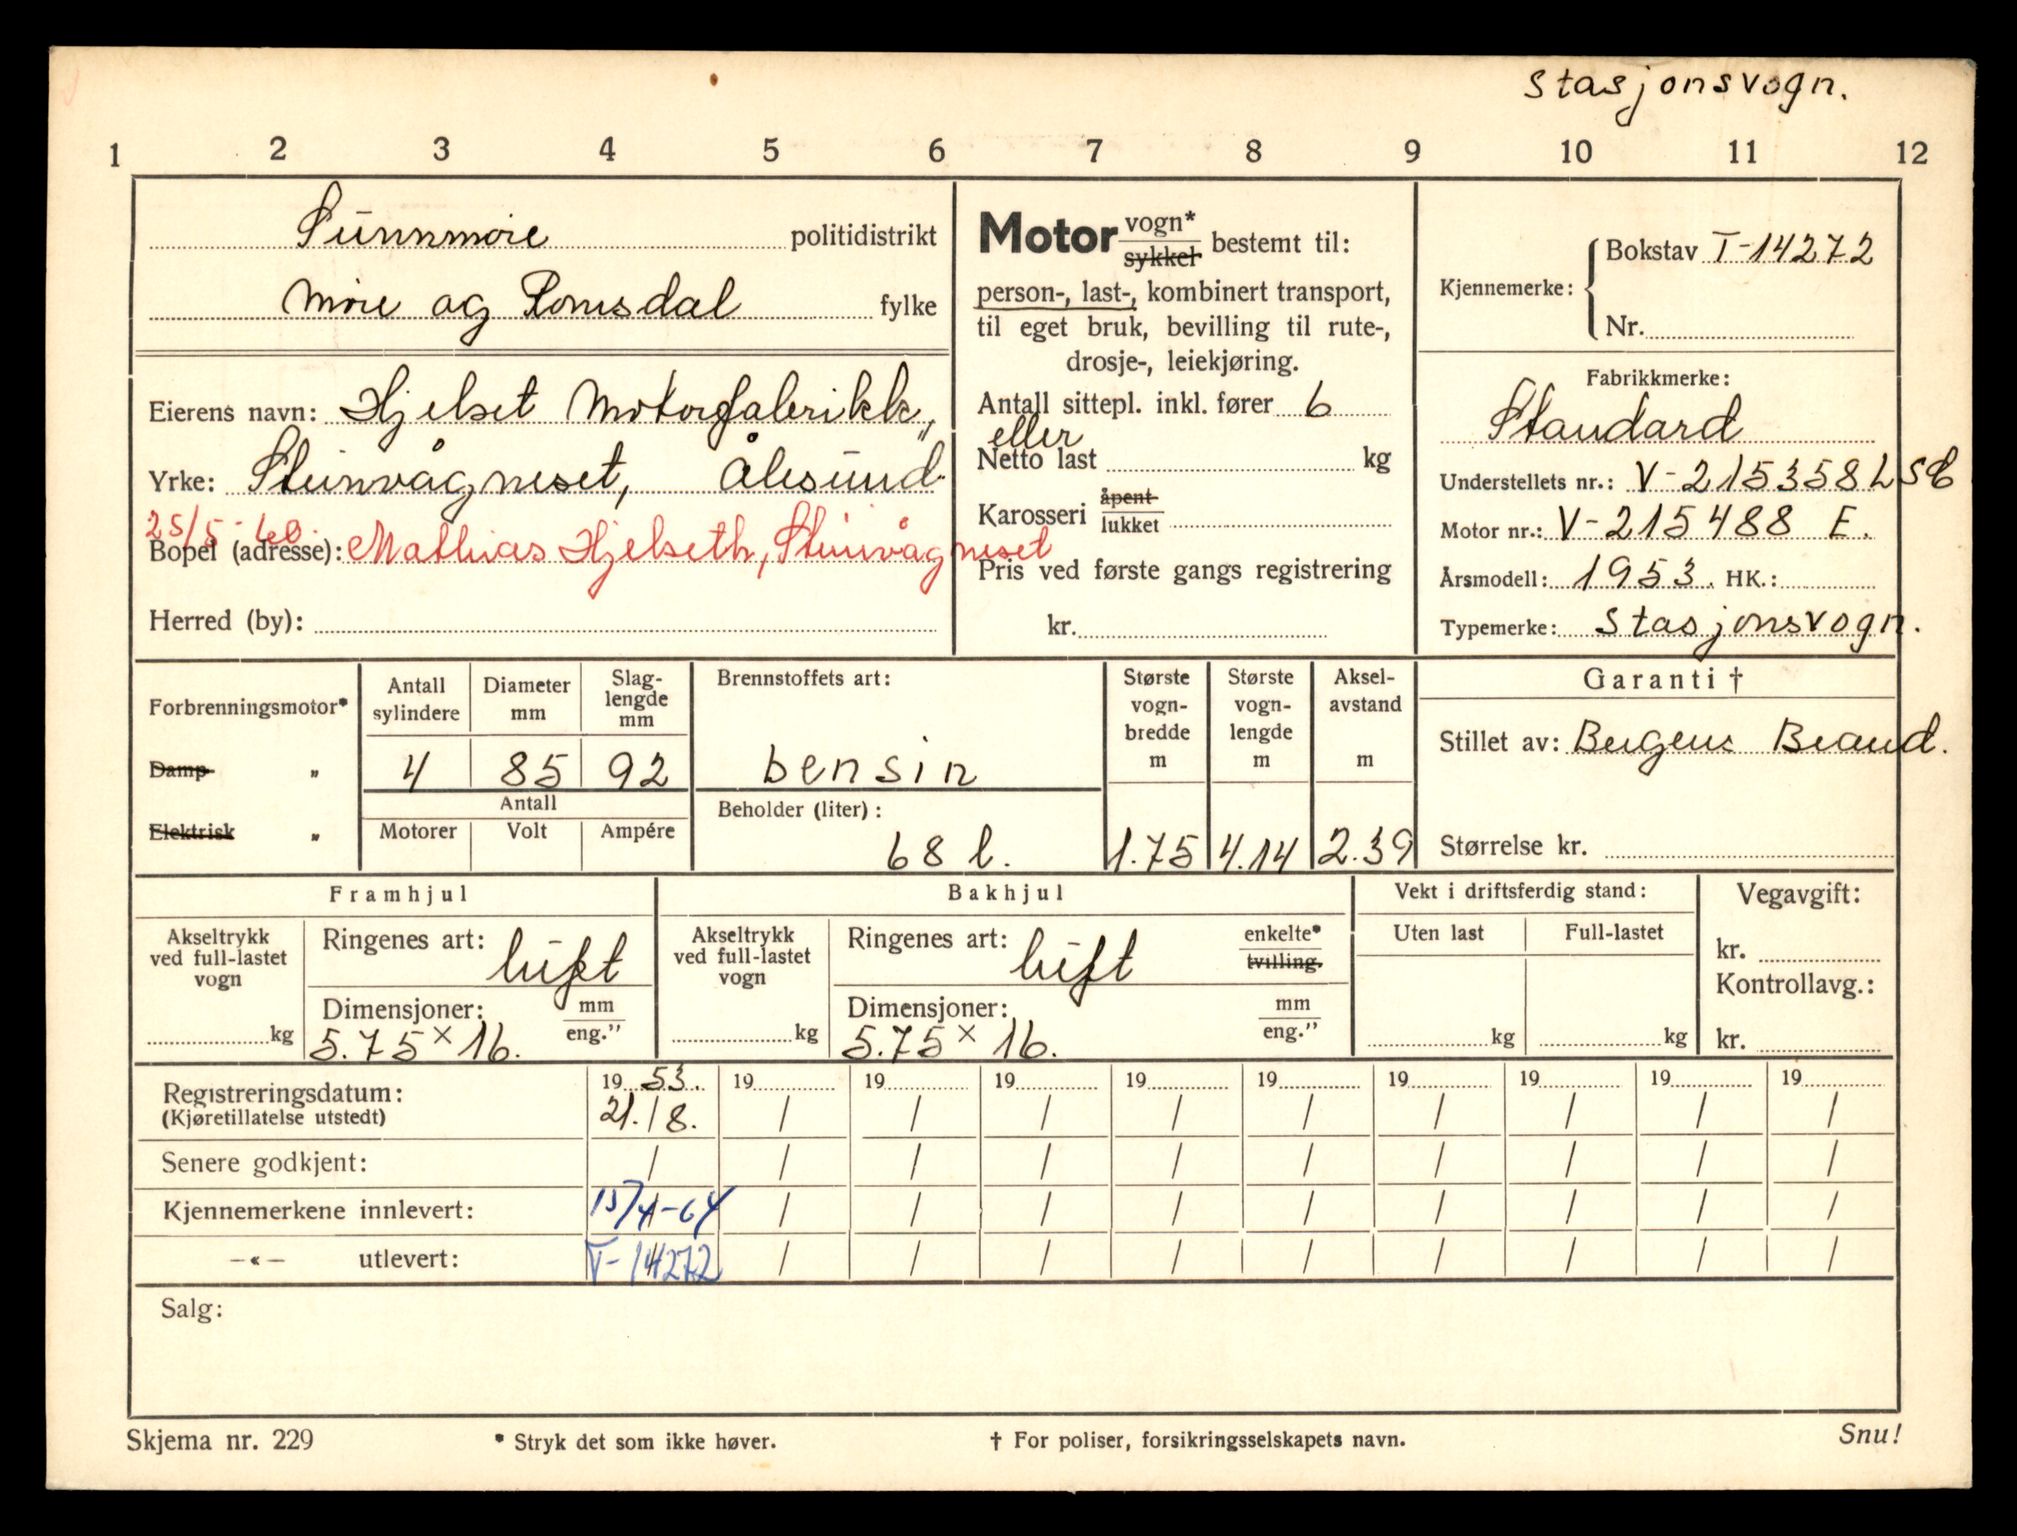 stasjonsvogn.
1 2 3 4 5 6 7 8 9 10 11 12
Sunnmøre politidistrikt
Møre og Romsdal fylke
Eierens navn: Hjelset Motorfabrikk,
Yrke: Steinvågneset, Ålesund.
25/5-60.
Bopel (adresse): Mathias Hjelseth, Steinvågneset
Herred (by):
Motor vogn* sykkel bestemt til:
person-, last-, kombinert transport,
til eget bruk, bevilling til rute-,
drosje-, leiekjøring.
Antall sittepl. inkl. fører 6
eller
Netto last kg
Karosseri åpent lukket
Pris ved første gangs registrering
kr.
Kjennemerke: Bokstav T-14272
Nr.
Fabrikkmerke:
Standard
Understellets nr.: V-215358LSC
Motor nr.: V-215488 E.
Årsmodell: 1953. HK.:
Typemerke: Stasjonsvogn.
Forbrenningsmotor*
Damp "
Elektrisk "
Antall sylindere
4
Diameter mm
85
Slag-lengde mm
92
Antall
Motorer Volt Ampére
Brennstoffets art:
bensin
Beholder (liter):
68 l.
Største vogn-bredde m
1.75
Største vogn-lengde m
4.14
Aksel-avstand m
2.39
Garanti †
Stillet av: Bergens Brand.
Størrelse kr.
Framhjul
Akseltrykk ved full-lastet vogn
kg
Ringenes art: luft
Dimensjoner: mm eng."
5.75 x 16.
Bakhjul
Akseltrykk ved full-lastet vogn
kg
Ringenes art: luft enkelte* tvilling.
Dimensjoner: mm eng."
5.75 x 16.
Vekt i driftsferdig stand:
Uten last Full-lastet
kg kg
Vegavgift:
kr.
Kontrollavg.:
kr.
Registreringsdatum: 19 53. 19 19 19 19 19 19 19 19 19
(Kjøretillatelse utstedt) 21./8. / / / / / / / / /
Senere godkjent: / / / / / / / / / /
Kjennemerkene innlevert: 15/4-64 / / / / / / / / /
—«— utlevert: T-14272 / / / / / / / / /
Salg:
Skjema nr. 229 * Stryk det som ikke høver. † For poliser, forsikringsselskapets navn. Snu!